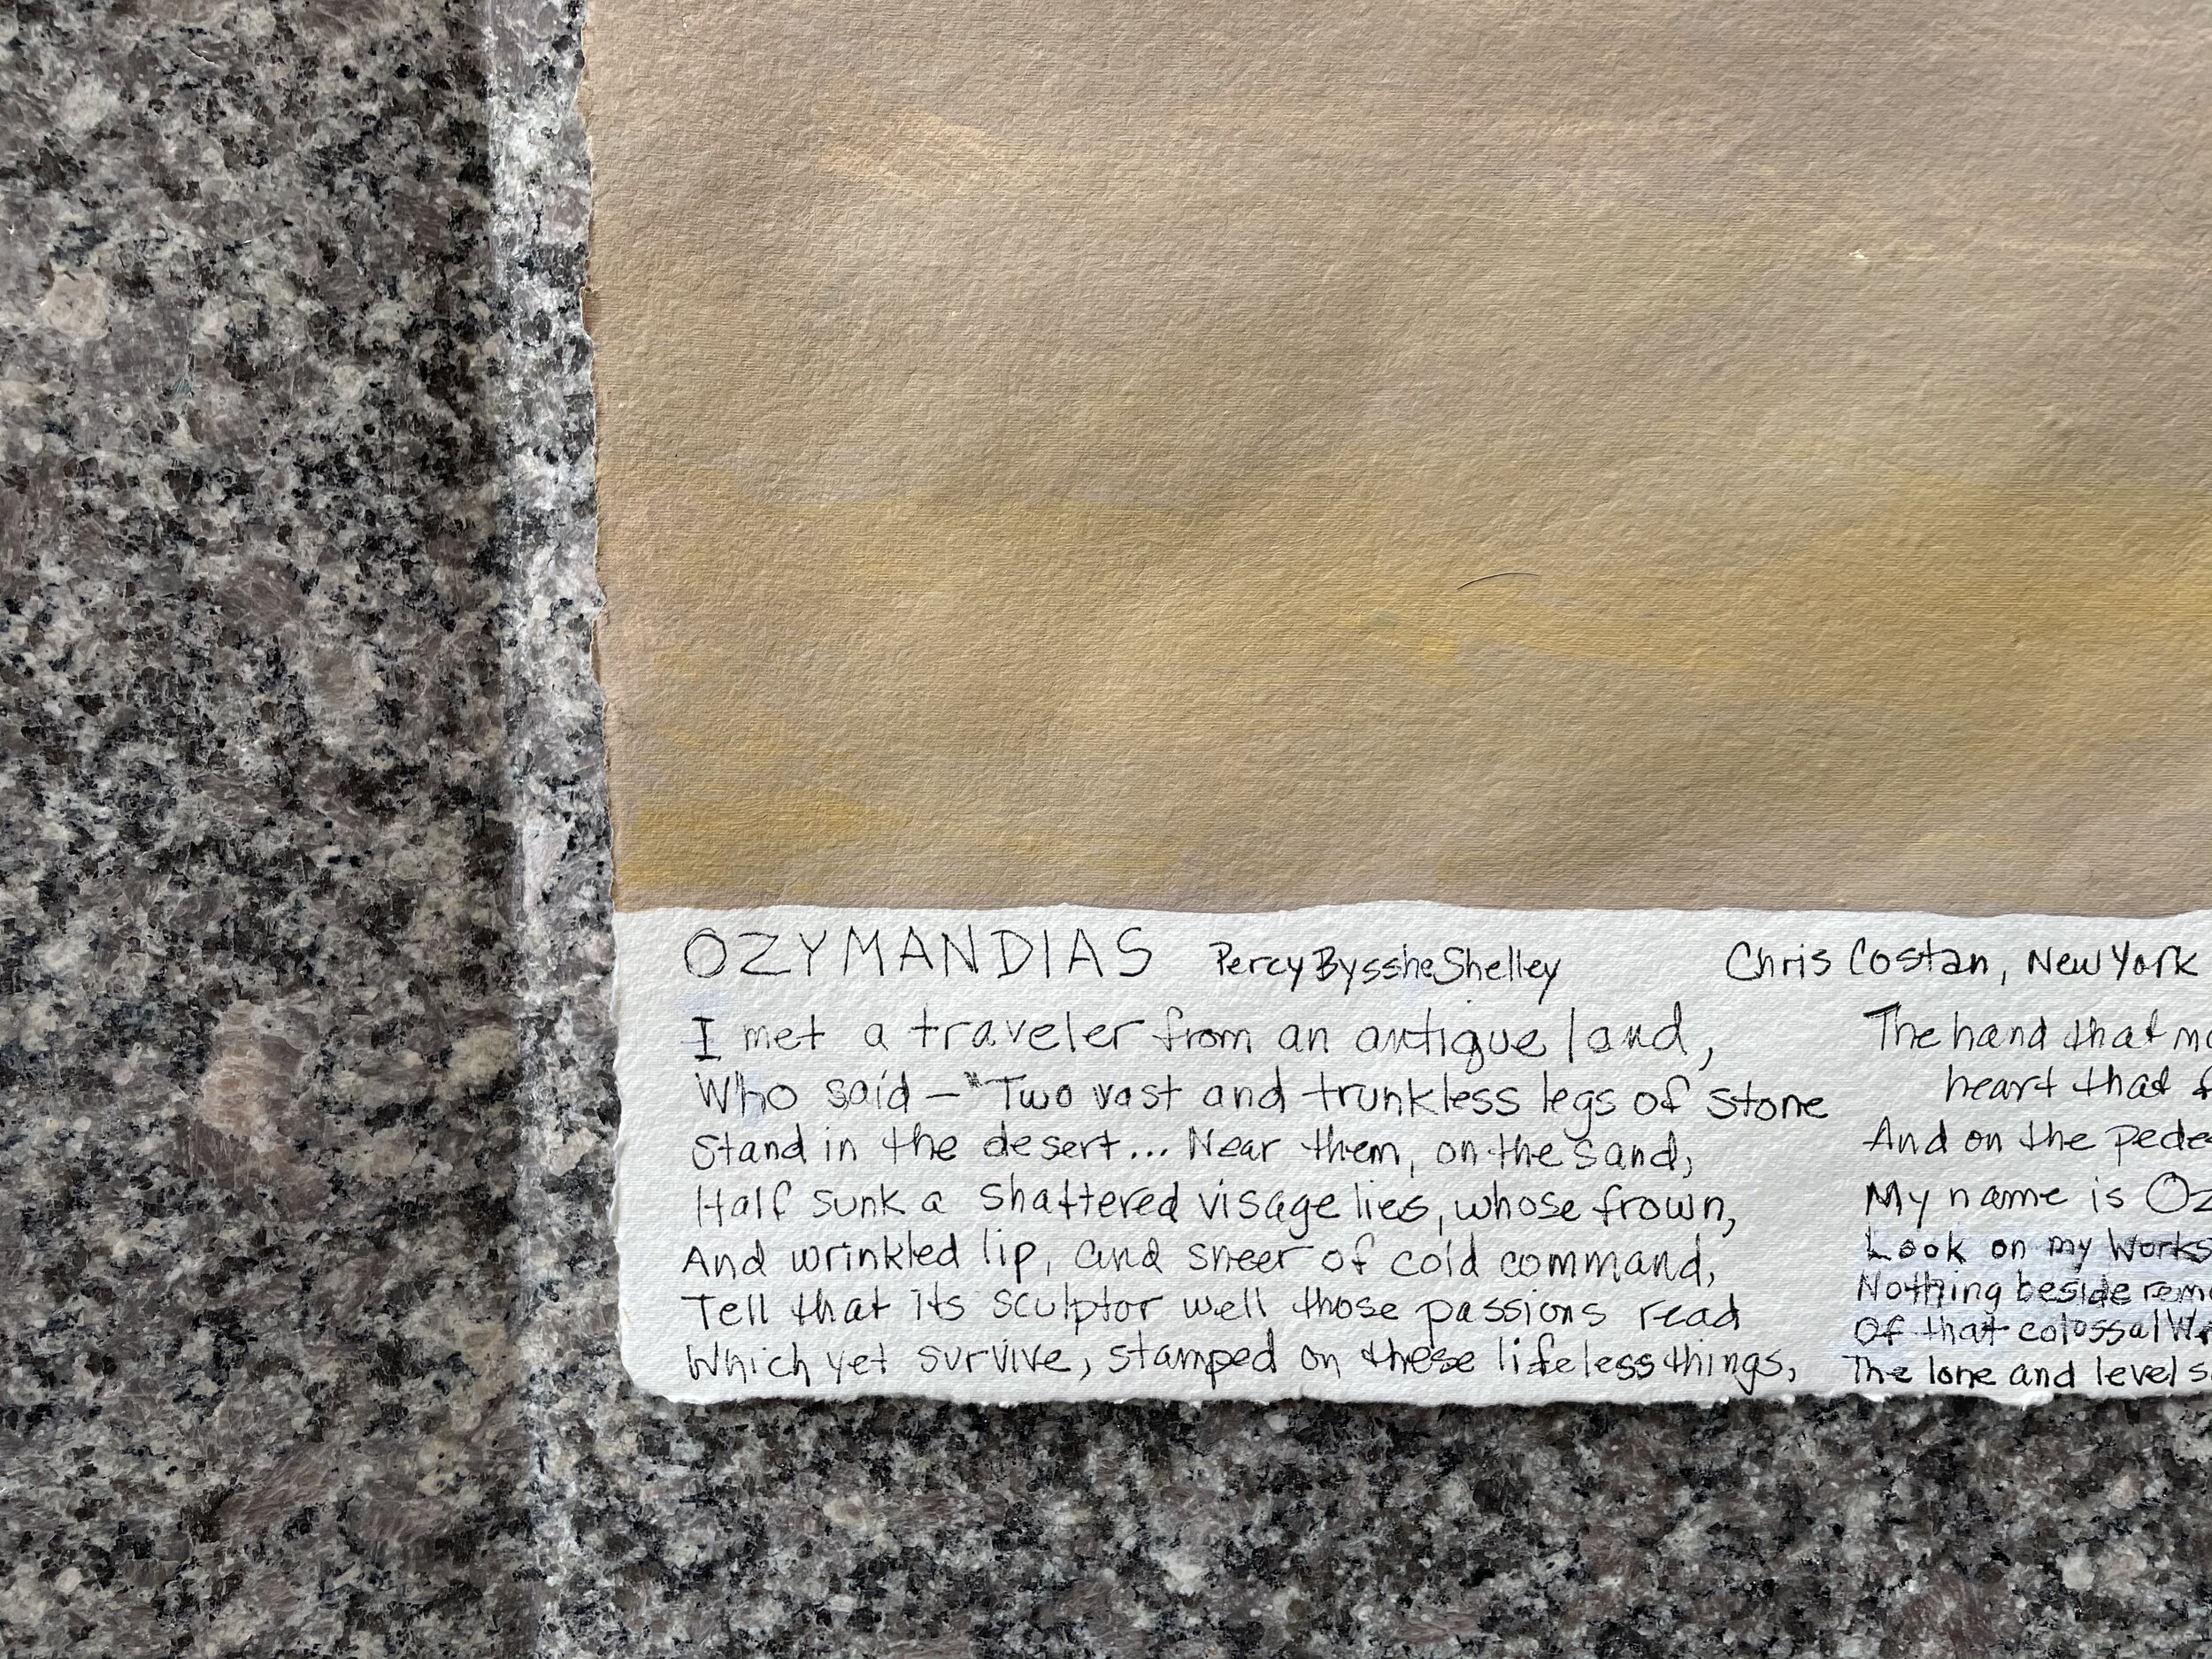 OZYMANDIAS Percy Bysshe Shelley Chris Costan, New York
I met a traveler from an antique land,
Who said — "Two vast and trunkless legs of stone
Stand in the desert... Near them, on the sand,
Half sunk a shattered visage lies, whose frown,
And wrinkled lip, and sneer of cold command,
Tell that its sculptor well those passions read
Which yet survive, stamped on these lifeless things,
The hand that
heart that
And on the
My name is
Look on my Works
Nothing beside
Of that colossal
The lone and level